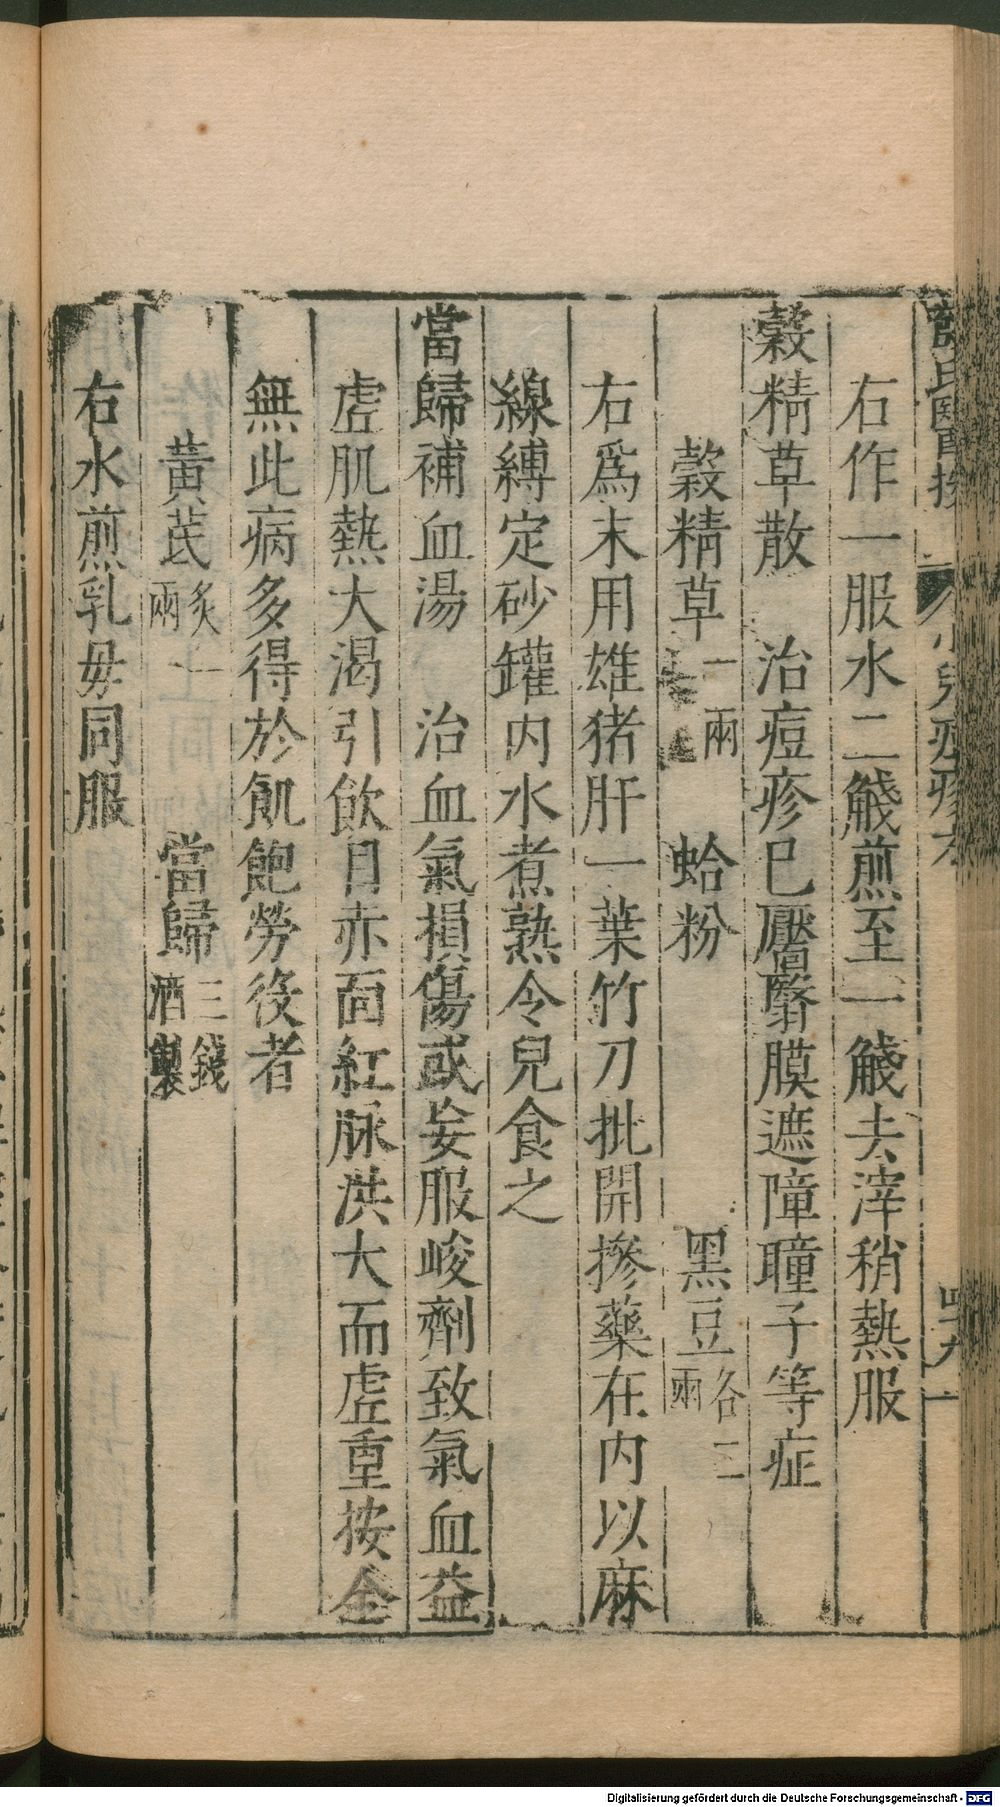 右作一服水二觮煎至一觮去滓稍熱服
穀精草散　治痘疹已靨翳膜遮障瞳子等症
穀精草一兩　蛤粉　黑豆各二兩
右爲末用雄猪肝一葉竹刀批開摻藥在内以麻
線縛定砂罐内水煮熟令兒食之
當歸補血湯　治血氣損傷或妄服峻劑致氣血益
虛肌熱大渴引飲目赤面紅脉洪大而虛重按全
無此病多得於飢飽勞役者
黃芪炙一兩　當歸三錢酒製
右水煎乳母同服
Digitalisierung gefördert durch die Deutsche Forschungsgemeinschaft - DFG